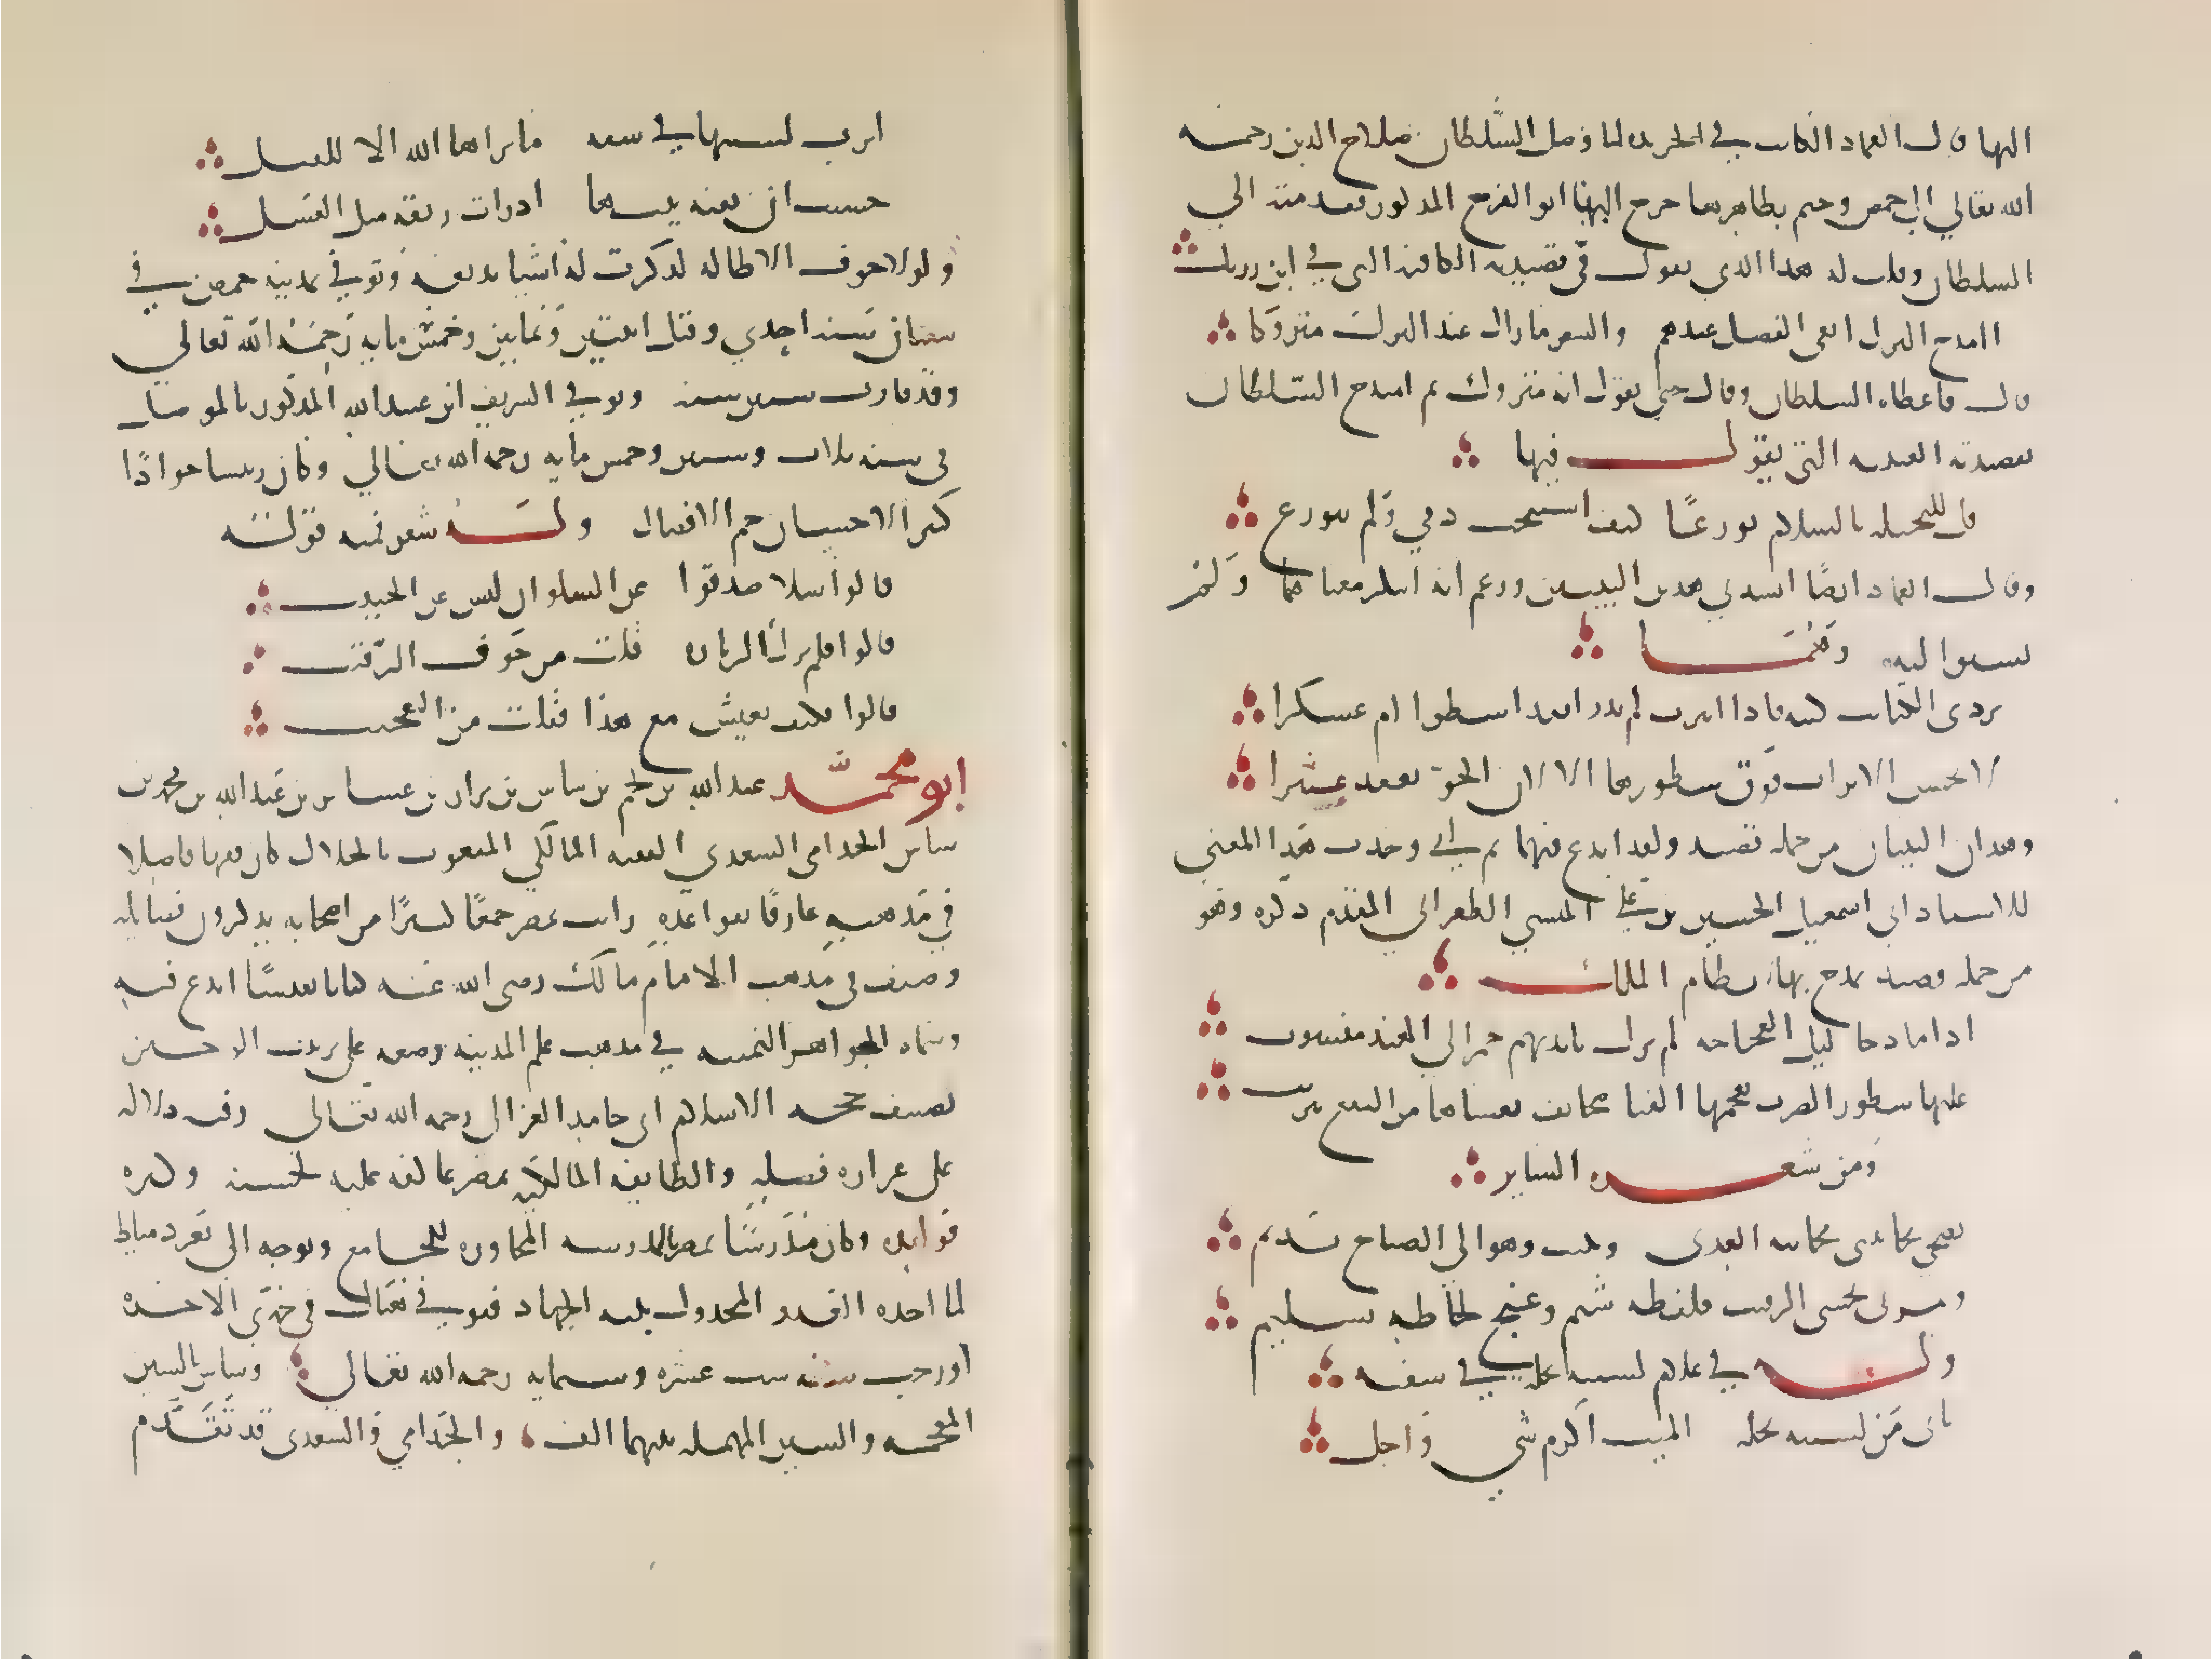 اليها قال العماد الكاتب في الخريده لما وصل السلطان صلاح الدين رحمه
الله تعالي الي حمص وخيم بظاهرها خرج الينا ابو الفرج المذكور فقدمته الي
السلطان وقلت له هذا الذي يقول في قصيدته الكافيه التي في ابن رزيك
اامدح الترك ابغي الفضل عندهم والشعر مازال عند الترك متروكا
قال فاعطاه السلطان وقال حتي يقول انه متروك ثم امتدح السلطان
بقصيدته العينيه التي يقول فيها
قل للبخيله بالسلام تورعًا كيف استبحت دمي ولم تتورع
وقال العماد ايضًا انشدني هذين البيتين وزعم انه ابتكر معناهما ولم
يسبق اليه وهما
تردي الكتاب كتبه فاذا انبرت لم يدر انفذ اسطرا ام عسكرا
لا يحسن الاتراب فوق سطورها الا لان الجو يعقد عثيرا
وهذان البيتان من جمله قصيده ولقد ابدع فيهما ثم اني وجدت هذا المعني
للاستاد ابي اسمعيل الحسين بن علي المنشي الطغرائي المقدم ذكره وهو
من جمله قصيده يمدح بها نظام الملك
اذا ما دجا ليل العجاجه لم يزل بايديهم جمر الي الهند منسوب
عليها سطور الضرب يعجمها القنا صحائف يغشاها من النقع تتريب
ومن شعره الساير
يضحي يجانبني مجانبه العدي ويبيت وهو الي الصباح نديم
ويمر بي يخشي الرقيب فلفظه شتم وغنج لحاظه تسليم
وله في غلام لسبته نحله في شفته
بابي من لسبته نحله المت اكرم شي واجل
اثرت لسبتها في شفه ما براها الله الا للقبل
حسبت ان بفيه بيتها اذ رات ريقه مثل العسل
ولولا خوف الاطاله لذكرت له اشيا بديعه وتوفي بمدينه حمص في
شعبان سنه احدي وقيل اثنتين وثمانين وخمس مايه رحمه الله تعالي
وقد قارب ستين سنه وتوفي الشريف ابن عبيد الله المذكور بالموصل
في سنه ثلاث وستين وخمس مايه رحمه الله تعالي وكان رييسا جوادًا
كثير الاحسان جم الافضال وله شعر فمنه قوله
قالوا سلا صدقوا عن السلوان ليس عن الحبيب
قالوا فلم ترك الزياره قلت من خوف الرقيب
قالوا فكيف يعيش مع هذا فقلت من العجيب
ابو محمد عبد الله بن نجم بن شاس بن نزار بن عشاير بن عبد الله بن محمد بن
شاس الجذامي السعدي الفقيه المالكي المنعوت بالجلال كان فقيها فاضلا
في مذهبه عارفًا بقواعده رايت بمصر جمعًا كثيرًا من اصحابه يذكرون فضايله
وصنف في مذهب الامام مالك رضي الله عنه كتابا نفيسًا ابدع فيه
وسماه الجواهر الثمينه في مذهب علم المدينه وضعه علي ترتيب الوجيز
تصنيف حجه الاسلام ابي حامد الغزالي رحمه الله تعالي وفيه دلاله
علي غزاره فضله والطايفه المالكيه بمصر عاكفه عليه لحسنه وكثره
فوايده وكان مدرسًا بمصر بالمدرسه المجاوره للجامع وتوجه الي ثغر دمياط
لما اخذه العدو المخذول بنيه الجهاد فتوفي هناك في جمدي الاخره
او رجب سنه ست عشره وستمايه رحمه الله تعالي وشاس بالشين
المعجمه والسين المهمله بينهما الف والجذامي والسعدي قد تقدم